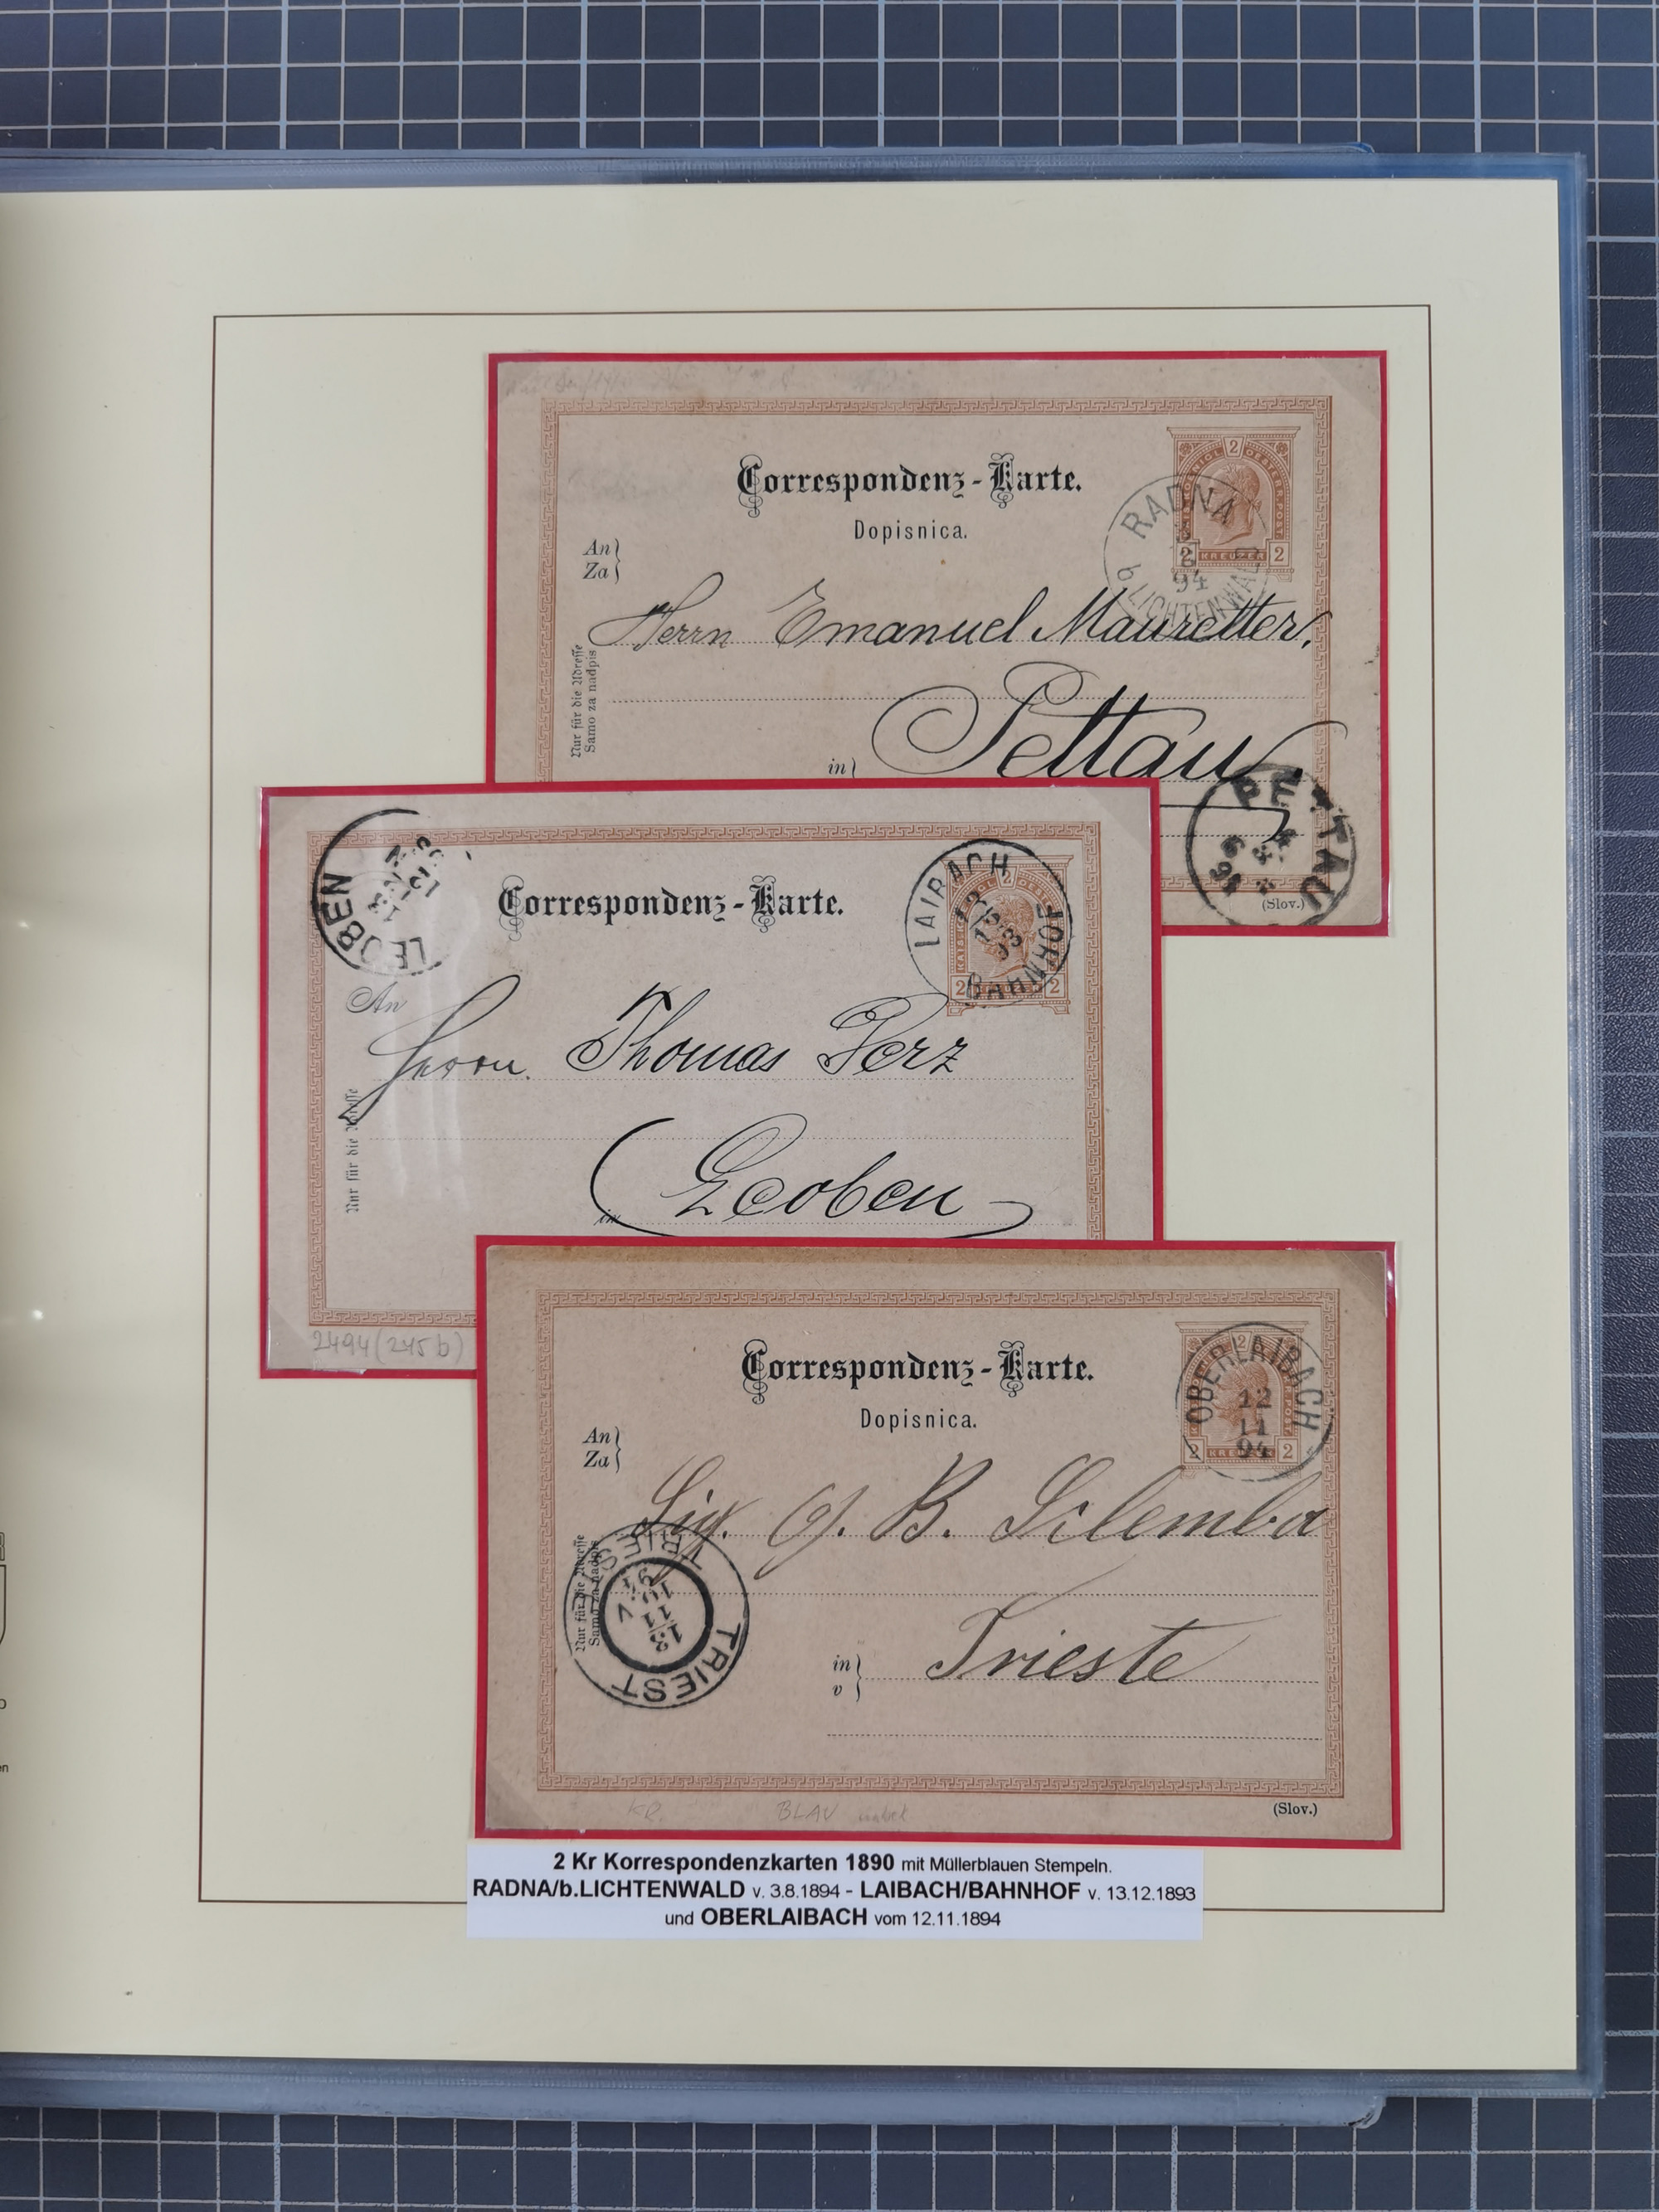 Correspondenz-Karte.
Dopisnica.
An
Za
Herrn Emanuel Mauretter,
Nur für die Adresse
Samo za nadpis
in
Pettau
(Slov.)
2 KREUZER 2
RADNA
3
8
94
b. LICHTENWALD
PETTAU
Correspondenz-Karte.
LEOBEN
LAIBACH
BAHNHOF
An
Herrn Thomas Perz
Nur für die Adresse
in
Leoben
2494 (245 b)
Correspondenz-Karte.
Dopisnica.
OBERLAIBACH
12
11
94
An
Za
Sig. G. B. Scilemba
Nur für die Adresse
Samo za nadpis
TRIESTE
13
11
10 V
94
TRIEST
in
v
Trieste
(Slov.)
KR. BLAU
2 Kr Korrespondenzkarten 1890 mit Müllerblauen Stempeln.
RADNA/b.LICHTENWALD v. 3.8.1894 - LAIBACH/BAHNHOF v. 13.12.1893
und OBERLAIBACH vom 12.11.1894